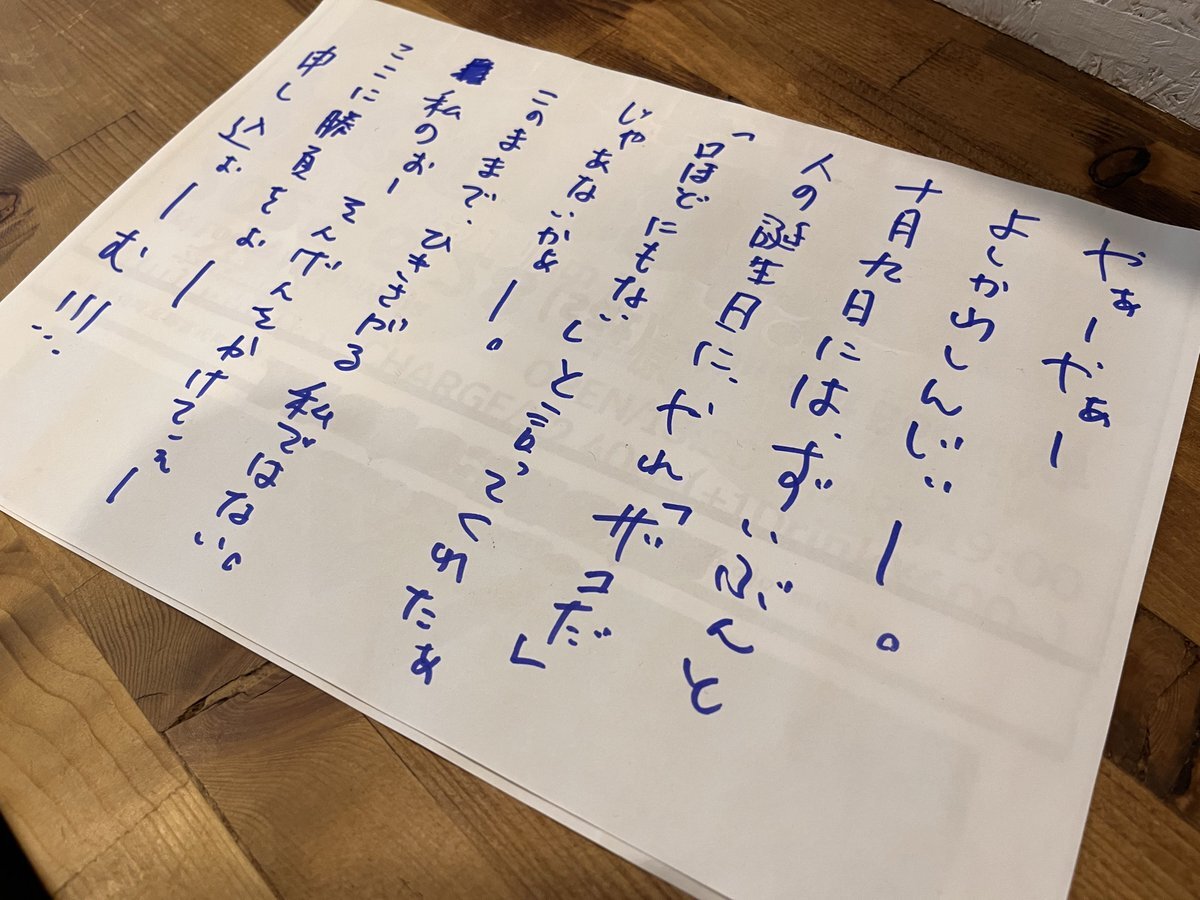 やぁーやぁー
よしかわしんじぃー。
十月九日には、ずいぶんと
人の誕生日に、やれ「ザコだ」
「口ほどにもない」と言ってくれたぁ
じゃあないかぁー。
このままで、ひきさがる私ではない。
私のおー そんげんをかけてぇー
ここに勝負をぉー
申し込ぉーむ!!!